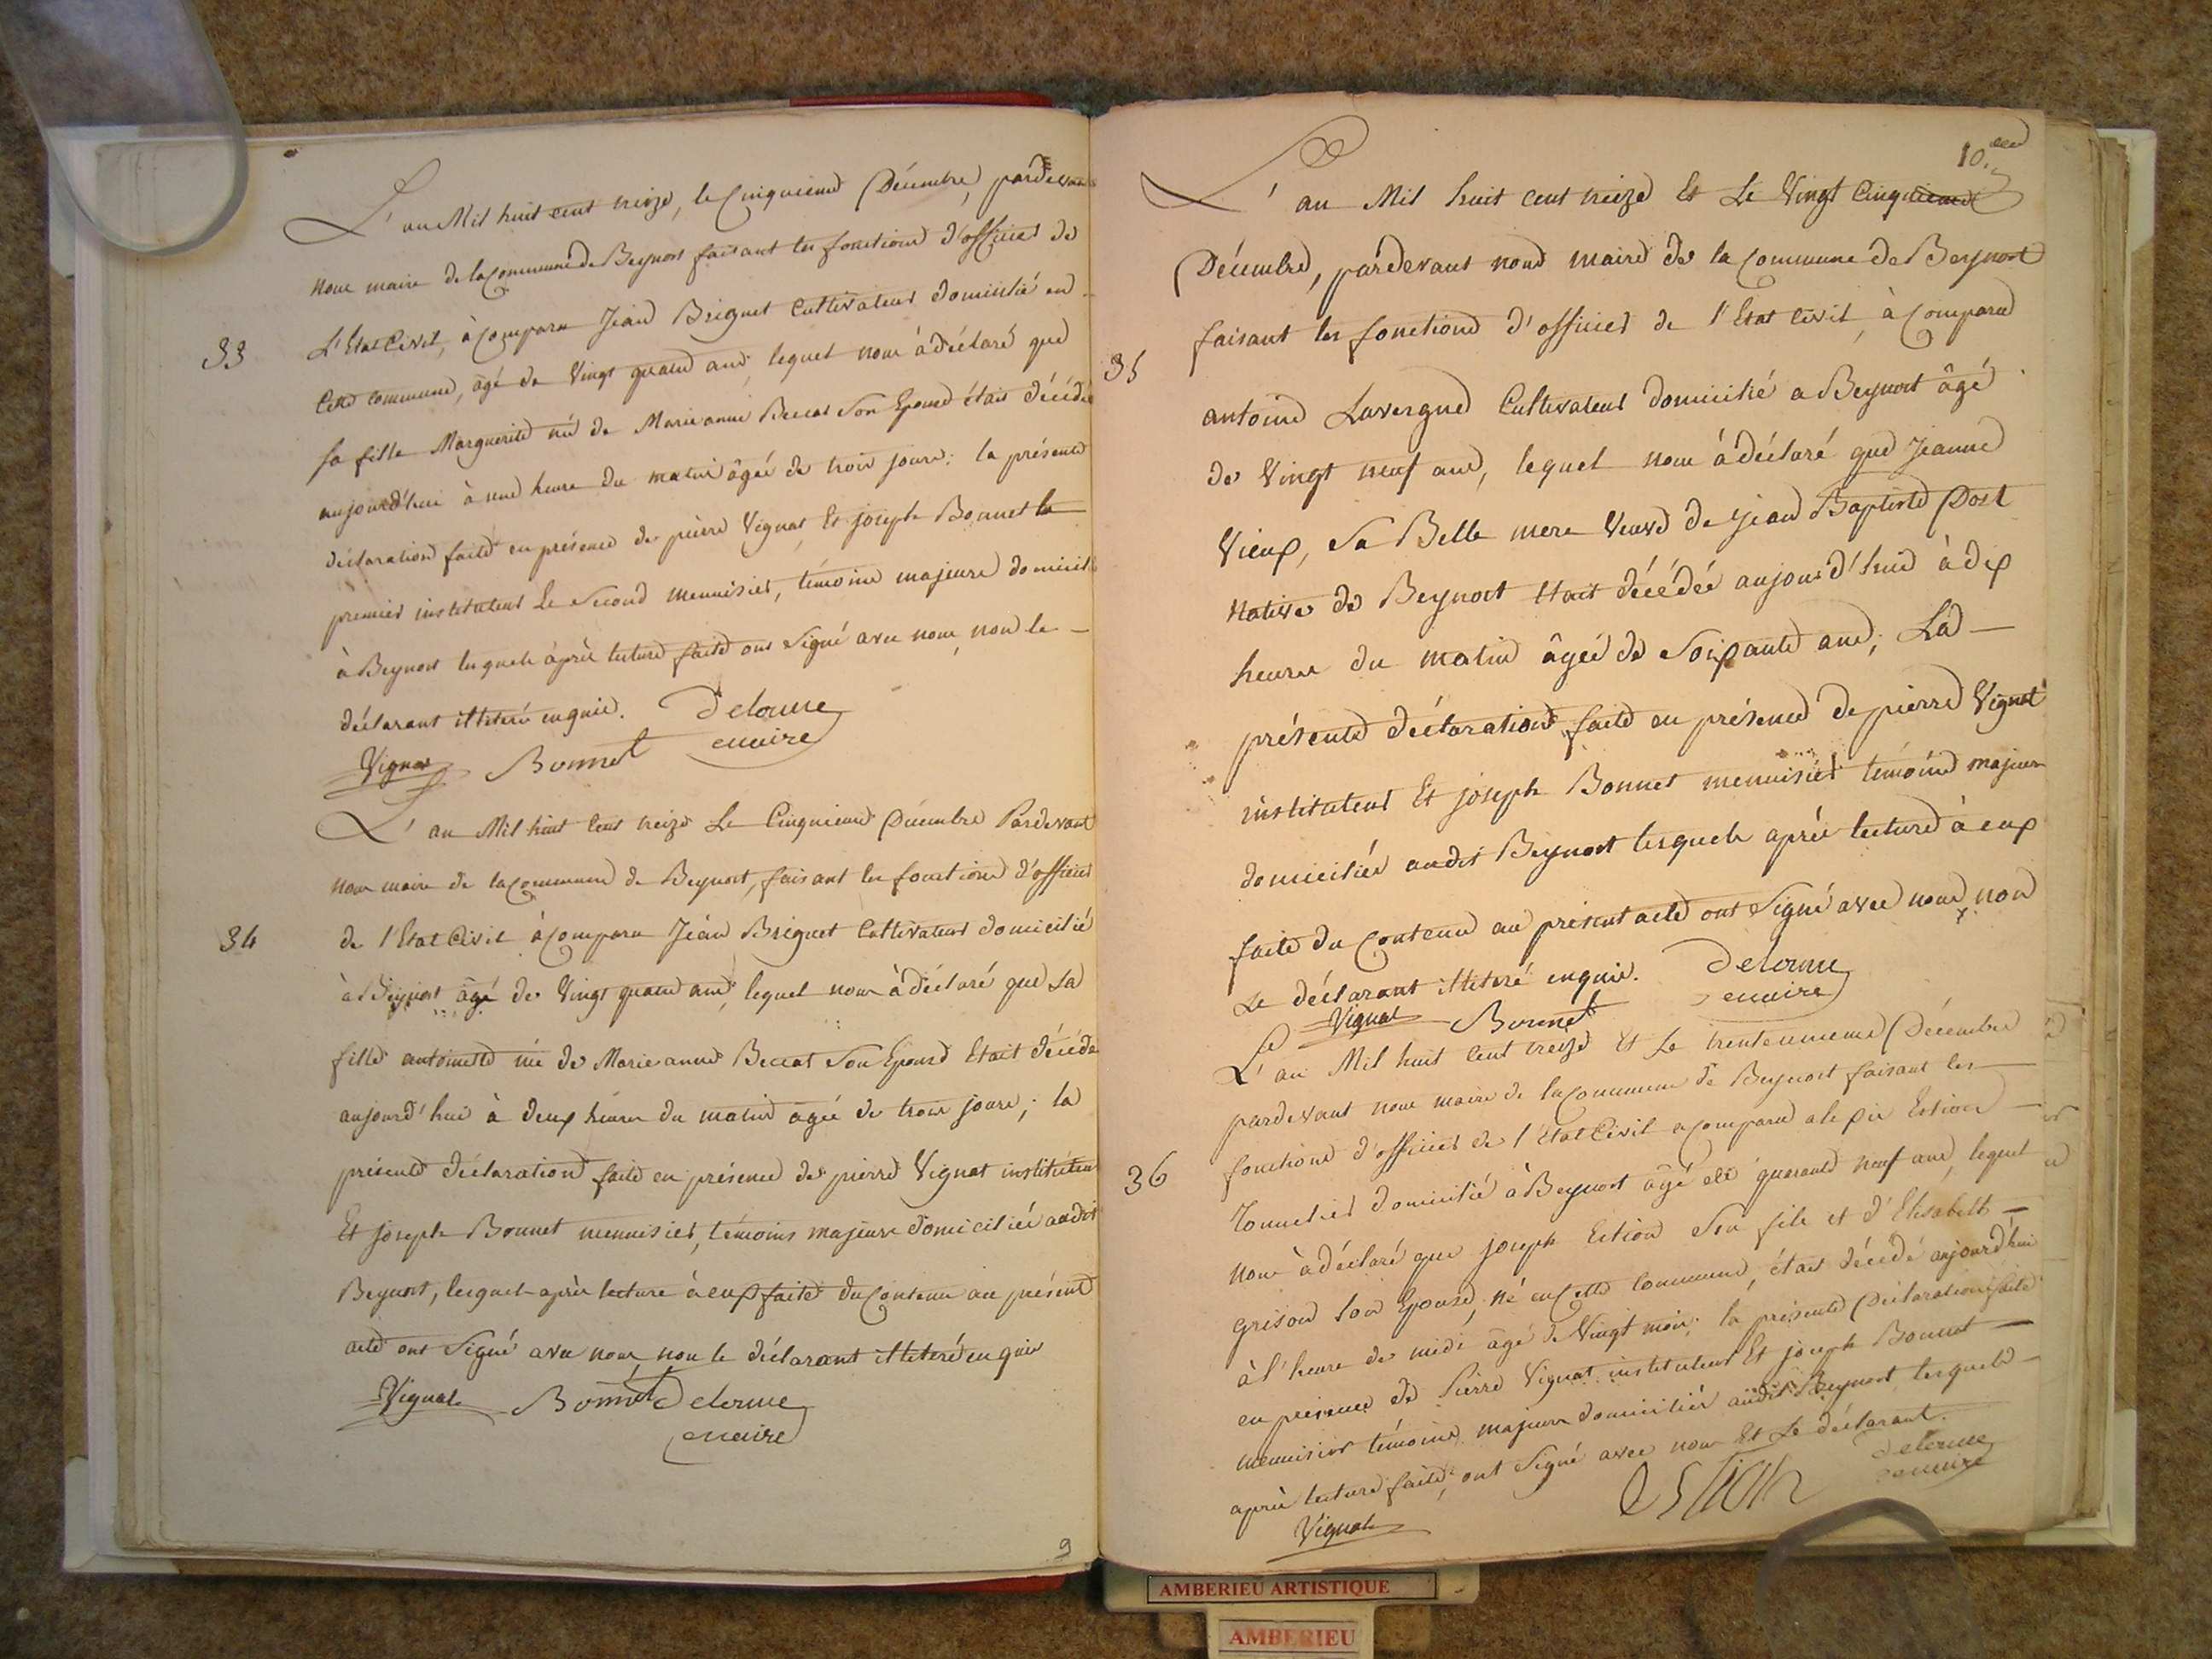 L'an Mil huit cent treize, le Cinquieme Décembre, pardevant
nous maire de la Commune de Beynost faisant les fonctions d'officier de
33
L'Etat Civil, à Comparu Jean Briguet Cultivateur domicilié en
Cette commune, âgé de Vingt quatre ans, lequel nous à déclaré que
sa fille Marguerite née de Marie anne Beccat Son Epouse était décédée
aujourd'hui à une heure du matin âgée de trois jours; la présente
déclaration faite en présence de pierre Vignat, Et joseph Bonnet le
premier instituteur Le Second menuisier, témoins majeurs domiciliés
à Beynost lesquels après lecture faite ont Signé avec nous, non le
déclarant illiteré enquis. Delorme
Vignat Bonnet maire
L'an Mil huit Cent treize Le Cinquieme Décembre Pardevant
nous maire de la Commune de Beynost, faisant les fonctions d'officier
34
de l'Etat Civil à Comparu Jean Briguet Cultivateur domicilié
à Beynost âgé de Vingt quatre ans, lequel nous à déclaré que Sa
fille antoinette née de Marie anne Beccat Son Epouse Etait décédée
aujourd'hui à deux heures du matin âgée de trois jours; la
présente déclaration faite en présence de pierre Vignat instituteur
Et joseph Bonnet menuisier, témoins majeurs domiciliés audit
Beynost, lesquels après lecture à eux faite du Contenu au présent
acte ont Signé avec nous, non le déclarant illiteré enquis
Vignat Bonnet Delorme
maire
9
10
L'an Mil huit cent treize Et Le Vingt Cinquieme
Décembre, pardevant nous maire de la Commune de Beynost
faisant les fonctions d'officier de l'Etat Civil, à Comparu
35
antoine Lavergne Cultivateur domicilié a Beynost âgé
de Vingt neuf ans, lequel nous à déclaré que Jeanne
Vieux, Sa Belle mere Veuve de Jean Baptiste Post
Native de Beynost Etait décédée aujourd'hui à dix
heures du matin âgée de Soixante ans; La
présente déclaration faite en présence de pierre Vignat
instituteur Et joseph Bonnet menuisier témoins majeurs
domiciliés audit Beynost lesquels après lecture à eux
faite du Contenu au présent acte ont Signé avec nous, non
Le déclarant illiteré enquis. Delorme
Vignat Bonnet maire
L'an Mil huit Cent treize Et Le trente unieme Décembre
pardevant nous maire de la Commune de Beynost faisant les
fonctions d'officier de l'Etat Civil a Comparu Estion
36
Tonnelier domicilié à Beynost âgé de quarante neuf ans, lequel
nous à déclaré que joseph Estion Son fils et d'Elisabeth
grison Son Epouse, né en Cette Commune, était décédé aujourd'hui
à l'heure de midi âgé de Vingt mois; la présente Déclaration faite
en présence de Pierre Vignat instituteur Et joseph Bonnet
menuisier témoins majeurs domiciliés audit Beynost lesquels
après lecture faite, ont Signé avec nous Et Le déclarant.
Vignat estion Delorme
maire
AMBERIEU ARTISTIQUE
AMBERIEU